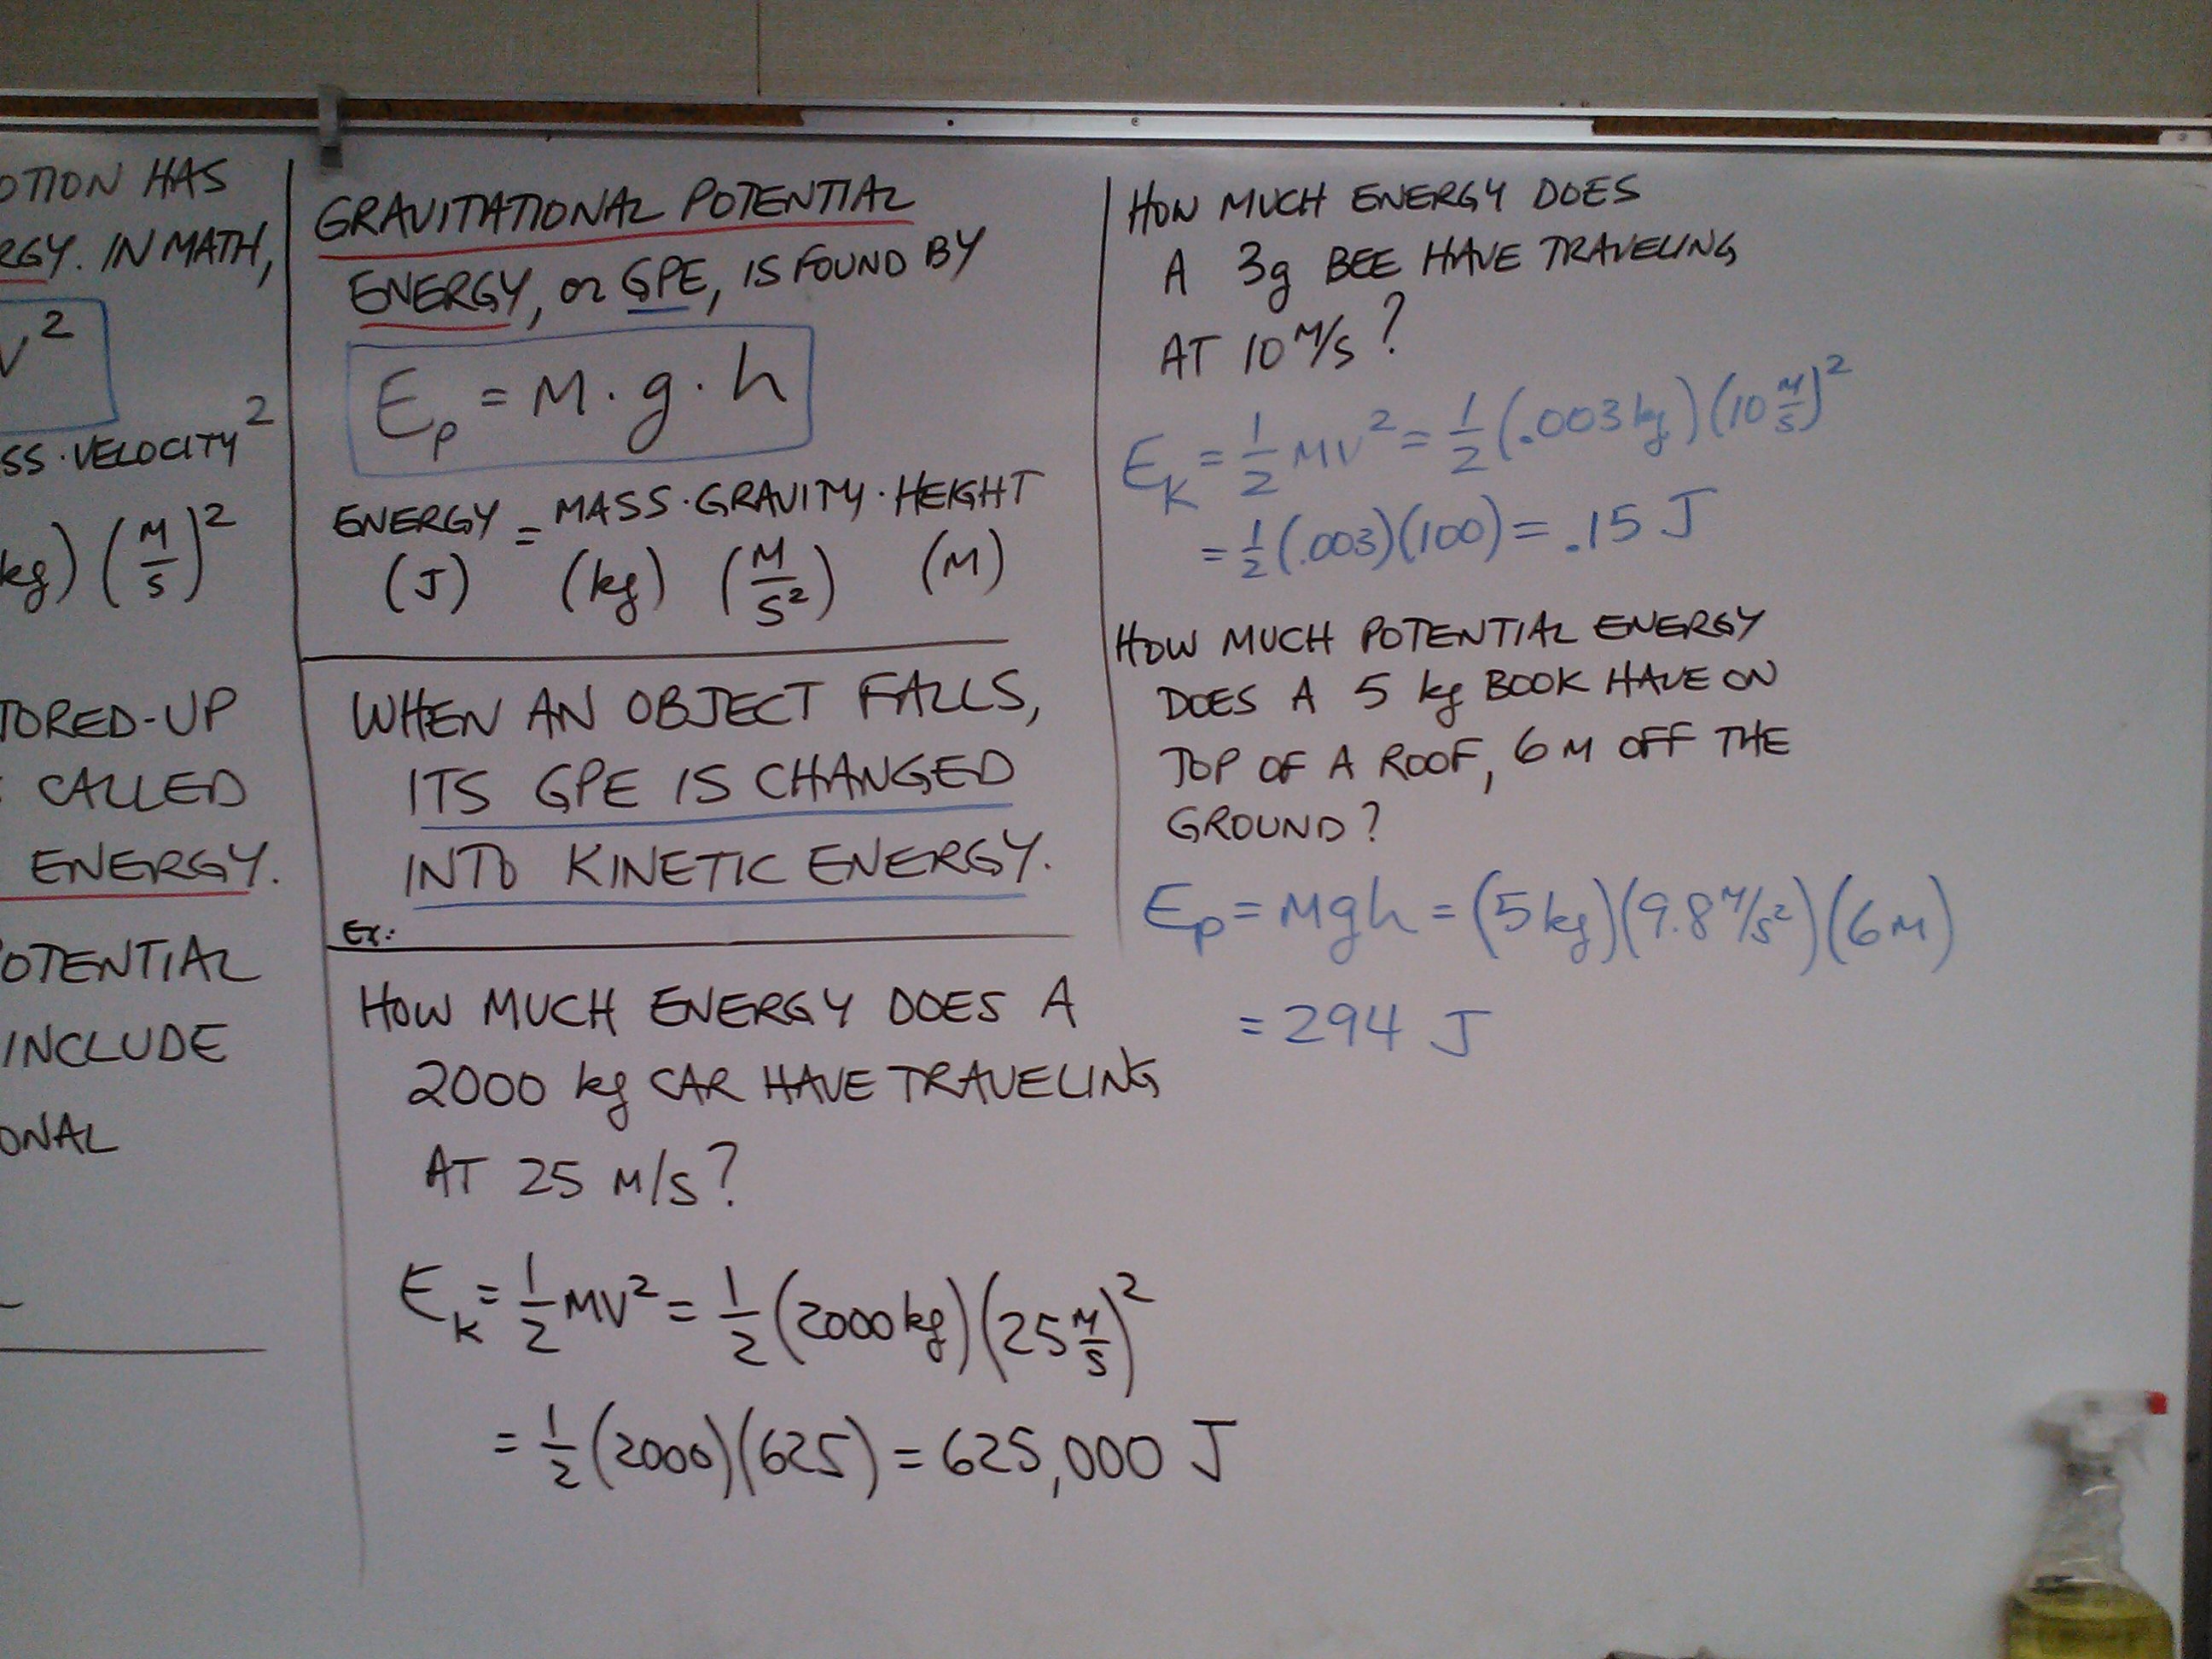 OTION HAS
RGY. IN MATH,
V²
SS·VELOCITY²
kg) (M/S)²
TORED-UP
CALLED
ENERGY.
OTENTIAL
INCLUDE
ONAL
GRAVITATIONAL POTENTIAL
ENERGY, OR GPE, IS FOUND BY
Ep = M·g·h
ENERGY = MASS·GRAVITY·HEIGHT
(J) (kg) (M/S²) (M)
WHEN AN OBJECT FALLS,
ITS GPE IS CHANGED
INTO KINETIC ENERGY.
EX:
HOW MUCH ENERGY DOES A
2000 kg CAR HAVE TRAVELING
AT 25 M/S?
EK = 1/2 MV² = 1/2 (2000 kg)(25 M/S)²
= 1/2 (2000)(625) = 625,000 J
HOW MUCH ENERGY DOES
A 3g BEE HAVE TRAVELING
AT 10 M/S?
EK = 1/2 MV² = 1/2 (.003 kg)(10 M/S)²
= 1/2 (.003)(100) = .15 J
HOW MUCH POTENTIAL ENERGY
DOES A 5 kg BOOK HAVE ON
TOP OF A ROOF, 6 M OFF THE
GROUND?
Ep = Mgh = (5 kg)(9.8 M/S²)(6 M)
= 294 J